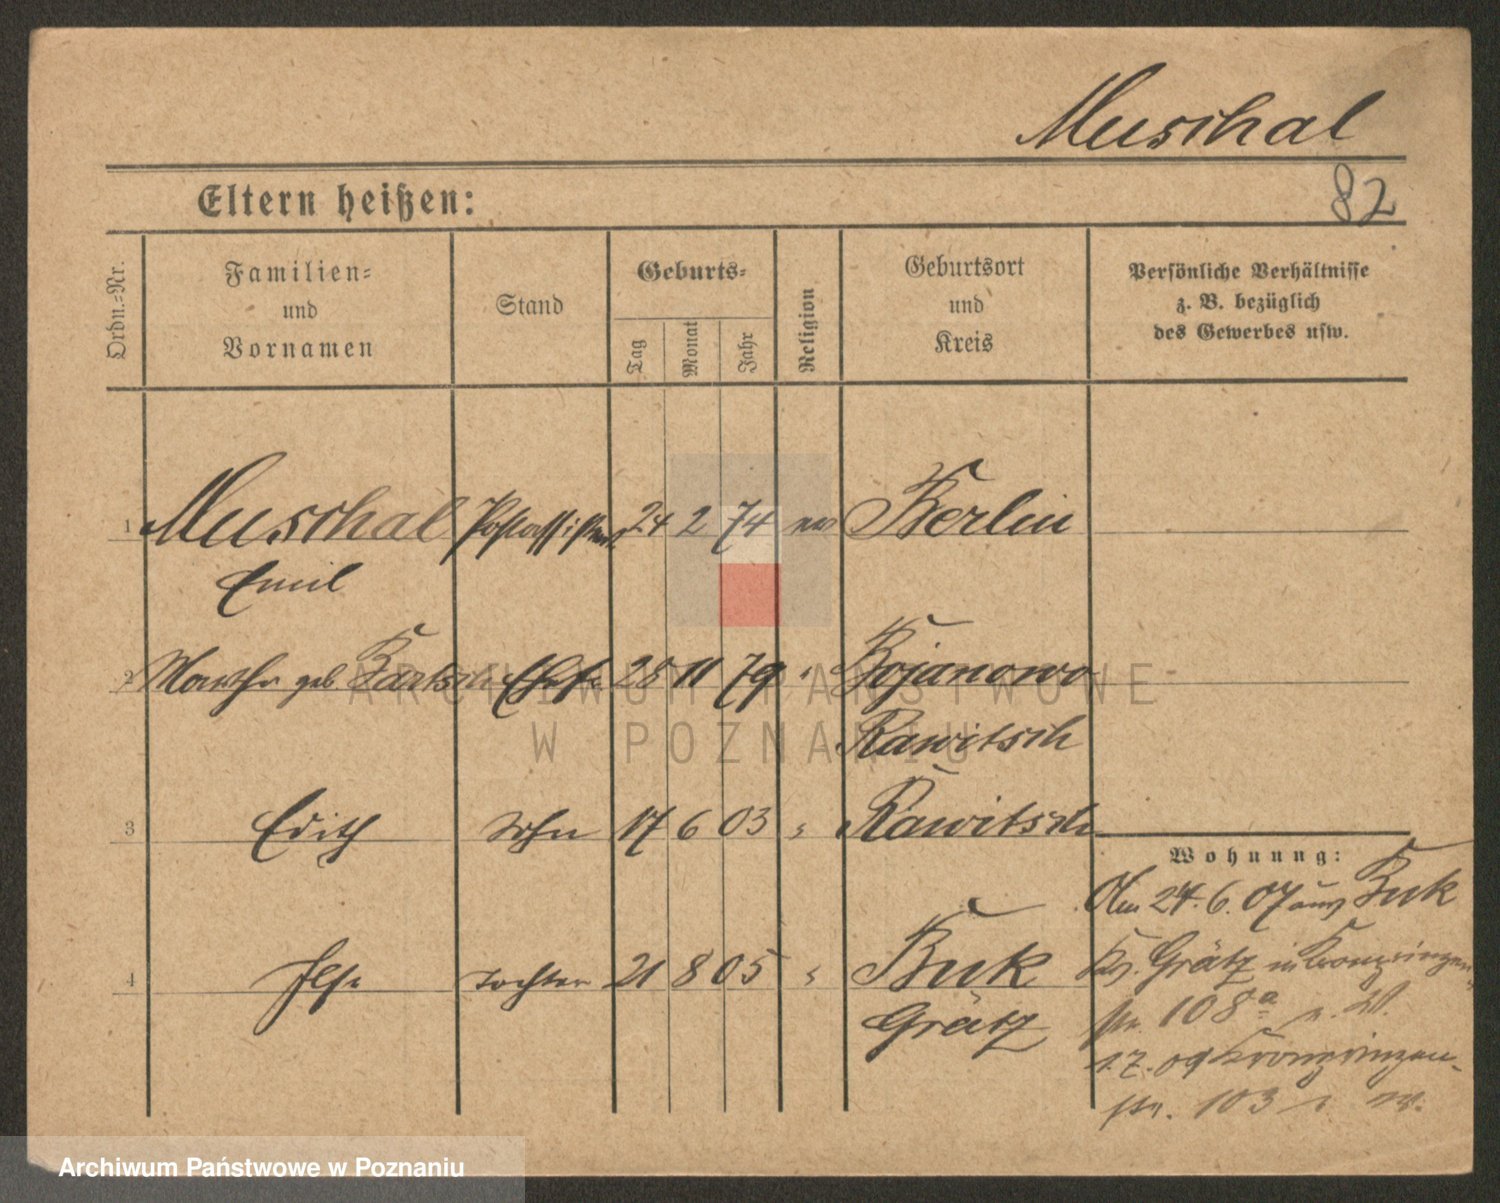 Muschal
82
Eltern heißen:
Ordn.-Nr.
Familien-
und
Vornamen
Stand
Geburts-
Tag
Monat
Jahr
Religion
Geburtsort
und
Kreis
Persönliche Verhältnisse
z. B. bezüglich
des Gewerbes usw.
1 Muschal Postassistent 24 2 74 ev Berlin
Emil
2 Martha geb Bartsch Ehefr 28 11 79 " Bojanowo
Rawitsch
3 Edith Sohn 17 6 03 " Rawitsch
Wohnung:
Am 24.6.07 aus Buk
4 Else Tochter 21 8 05 " Buk
Kr. Grätz in Kronprinzen
Grätz
str. 108a
1.7.09 Kronprinzen-
str. 103
ARCHIWUM PAŃSTWOWE
W POZNANIU
Archiwum Państwowe w Poznaniu